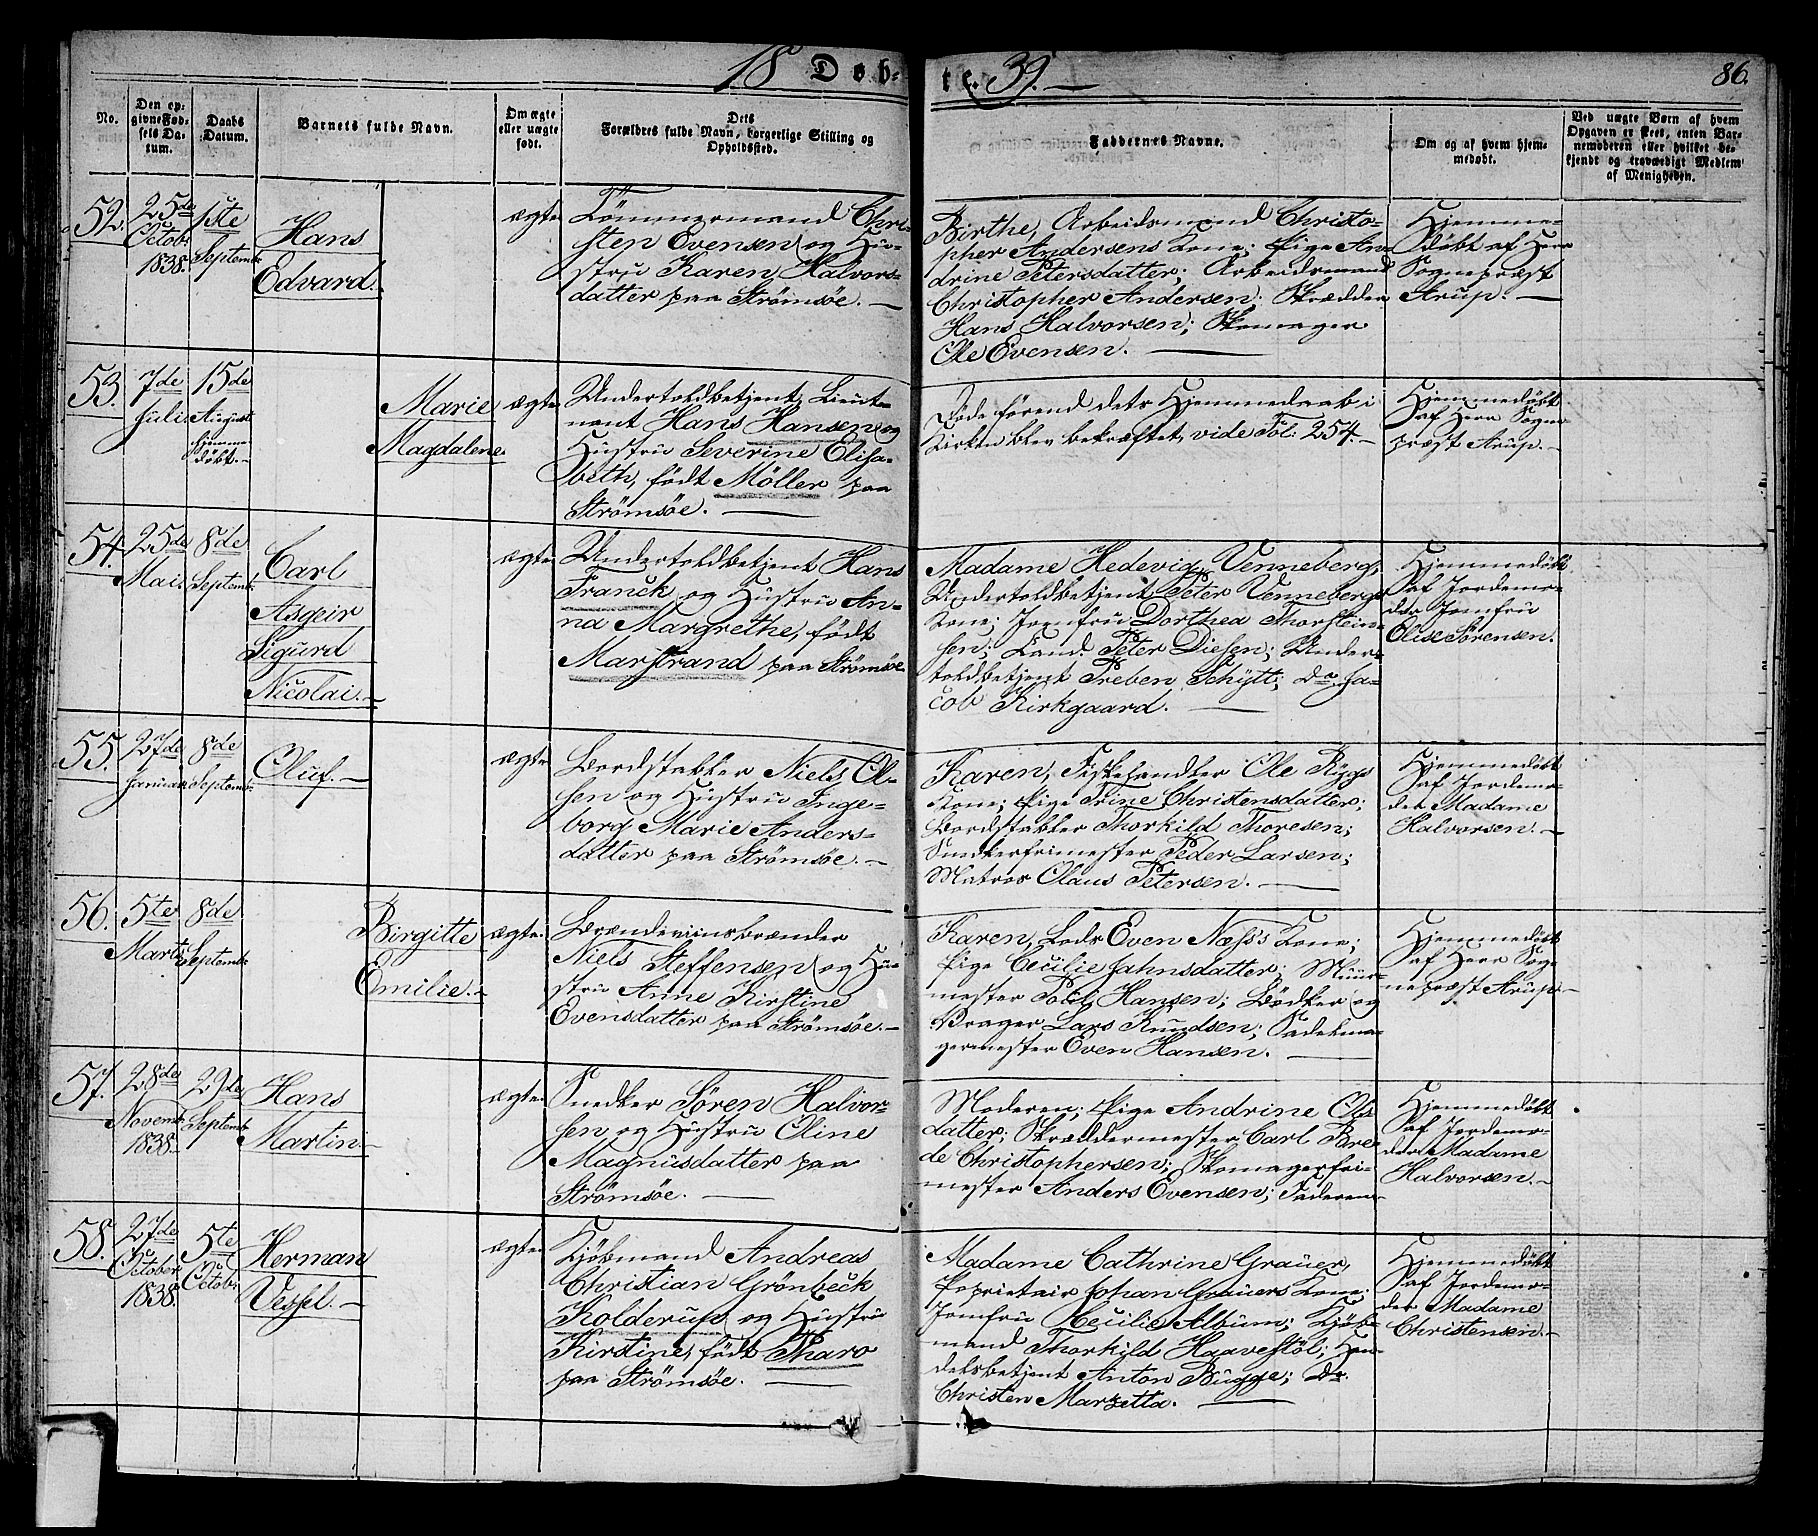 18 Døb-
te. 39. 86.
No.
Den op-
givne Fød-
sels Da-
tum.
Daabs
Datum.
Barnets fulde Navn.
Om ægte
eller uægte
født.
Dets
Forældres fulde Navn, borgerlige Stilling og
Opholdssted.
Faddernes Navne.
Om og af hvem hjem-
medøbt.
Ved uægte Børn af hvem
Opgaven er skeet, enten Bar-
nemoderen eller hvilket be-
kjendt og troværdigt Medlem
af Menigheden.
52. 25de
Octobr
1838.
1ste
Septembr
Hans
Edvard.
ægte
Tømmermand Chri-
sten Evensen og Hu-
stru Karen Halvors-
datter paa Strømsøe. —
Birthe, Arbeidsmand Christo-
pher Andersens Kone; Pige An-
drine Petersdatter; Arbeidsmand
Christopher Andersen; Skrædder
Hans Halvorsen; Skomager
Ole Evensen. —
Hjemme-
døbt af Herr
Sognepræst
Arup. —
53. 7de
Juli.
15de
August
hjemme-
døbt. —
Marie
Magdalene.
ægte
Undertoldbetjent, Lieute-
nant Hans Hansen og
Hustru Severine Elisa-
beth, født Möller paa
Strømsøe. —
Døde førend dets Hjemmedaab i
Kirken blev bekræftet, vide Fol: 254. —
Hjemmedøbt
af Herr Sogne-
præst Arup. —
54. 25de
Mai.
8de
Septembr
Carl
Asgeir
Sigurd
Nicolai. —
ægte
Undertoldbetjent Hans
Franck og Hustru An-
na Margrethe, født
Marstrand paa Strømsøe
Madame Hedevig Venneberg,
Undertoldbetjent Peter Vennebergs
Kone; Jomfru Dorthea Thorstein-
sen; Cand. Peter Diesen; Under-
toldbetjent Preben Schÿtt; Do Ja-
cob Kirkgaard. —
Hjemmedøbt
af Jordemo-
der Jomfru
Olise Sørensen.
55. 27de
Januar
8de
Septembr
Oluf. —
ægte
Bordstabler Niels Ol-
sen og Hustru Inge-
borg Marie Anders-
datter paa Strømsøe. —
Karen, Fiskehandler Ole Rÿgs
Kone; Pige Trine Christensdatter;
Bordstabler Thorkild Thoresen;
Snedkerfrimester Peder Larsen;
Matros Claus Petersen. —
Hjemmedøbt
af Jordemo-
der Madame
Halvorsen. —
56. 5te
Marts
8de
Septembr
Birgitte
Emilie. —
ægte.
Brændeviinsbrænder
Niels Steffensen og Hu-
stru Anne Kirstine
Evensdatter paa Strømsøe. —
Karen, Lods Even Næss's Kone;
Pige Cecilie Jahnsdatter; Muur-
mester Poul Hansen; Bødker og
Brager Lars Knudsen; Sadelma-
germester Even Hansen. —
Hjemmedøbt
af Herr Sog-
nepræst Arup. —
57. 28de
Novembr
1838.
29de
Septembr
Hans
Martin —
ægte.
Snedker Søren Halvor-
sen og Hustru Oline
Magnusdatter paa
Strømsøe. —
Moderen; Pige Andrine Ols-
datter; Skræddermester Carl Bre-
de Christophersen; Skomagerfri-
mester Anders Evensen; Faderen.
Hjemmedøbt
af Jordemo-
der Madame
Halvorsen. —
58. 27de
October
1838.
5te
Octobr
Herman
Vessel. —
ægte.
Kjøbmand Andreas
Christian Grönbeck
Kolderup og Hustru
Kirstine, født Tharo
paa Strømsøe. —
Madame Cathrine Graüer,
Proprietair Johan Graüers Kone;
Jomfru Cecilie Album; Kjøb-
mand Thorkild Haavestöl; Han-
delsbetjent Anton Bugge; Do
Christen Marzetta. —
Hjemmedøbt
af Jordemo-
der Madame
Christensen. —